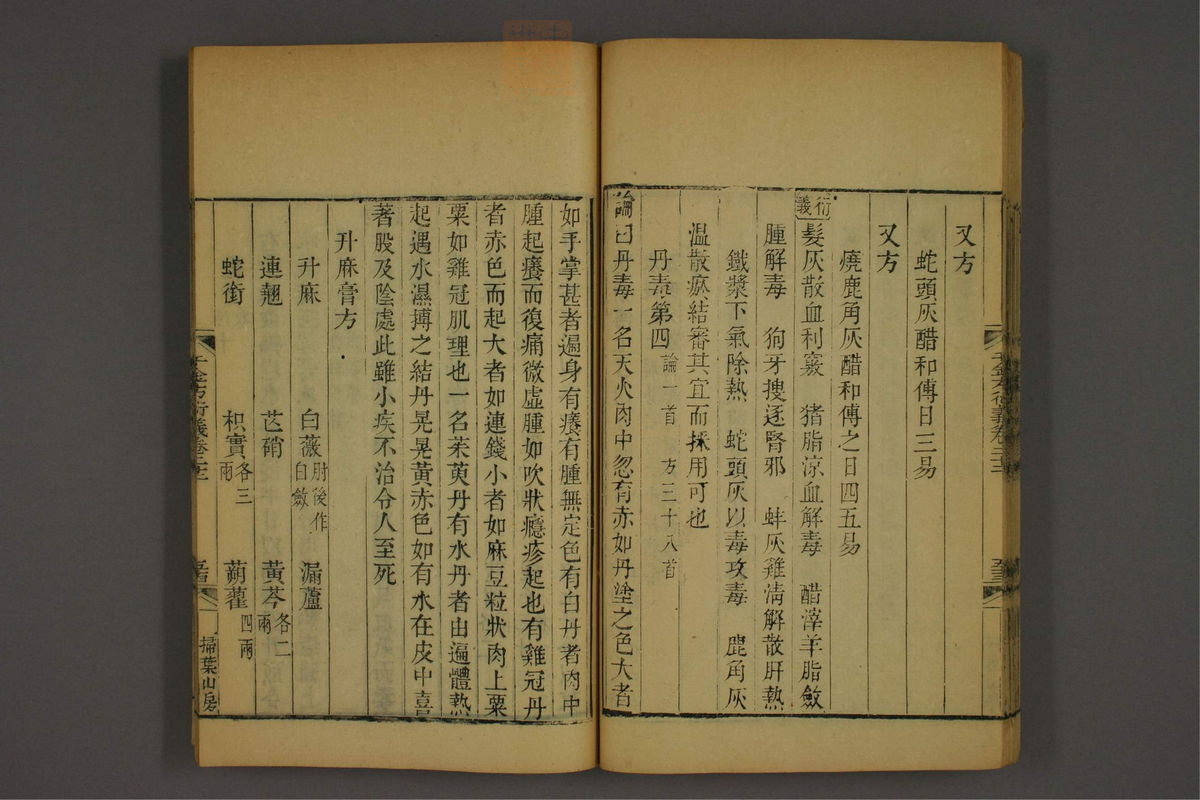 又方
蛇頭灰醋和傅日三易
又方
燒鹿角灰醋和傅之日四五易
衍義
髮灰散血利竅　猪脂涼血解毒　醋滓羊脂斂
腫解毒　狗牙搜逐腎邪　蚌灰雞清解散肝熱
鐵漿下氣除熱　蛇頭灰以毒攻毒　鹿角灰
溫散瘀結審其宜而採用可也
丹毒第四 論一首 方三十八首
論曰丹毒一名天火肉中忽有赤如丹塗之色大者
如手掌甚者遍身有癢有腫無定色有白丹者肉中
腫起癢而復痛微虛腫如吹狀癮疹起也有雞冠丹
者赤色而起大者如連錢小者如麻豆粒狀肉上粟
粟如雞冠肌理也一名茱萸丹有水丹者由遍體熱
起遇水濕搏之結丹晃晃黃赤色如有水在皮中喜
著股及陰處此雖小疾不治令人至死
升麻膏方
升麻　白薇 肘後作白斂　漏蘆
連翹　芒硝　黃芩 各二兩
蛇銜　枳實 各三兩　蒴藋 四兩
千金方衍義卷二十二
掃葉山房